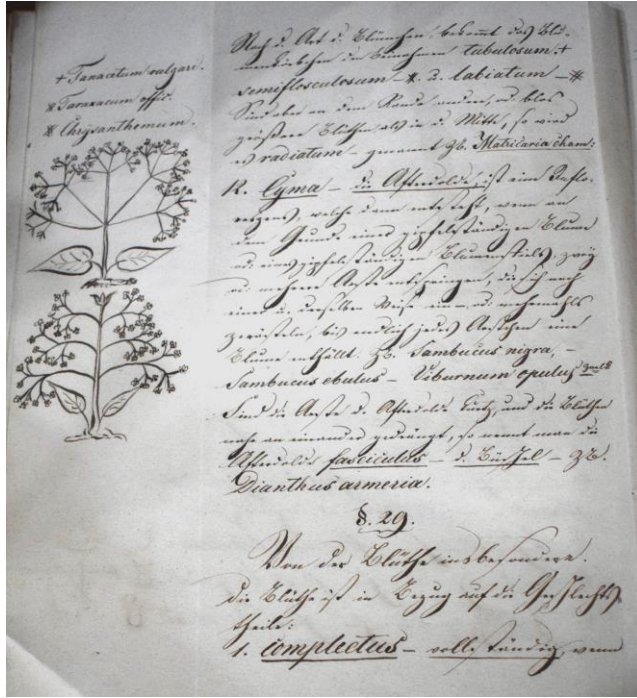 + Tanacetum vulgare.
* Taraxacum offic.
⁑ Chrysanthemum.
Nach d. Art d. Blümchen bekommt das Blu-
menkörbchen den Beinahmen tubulosum +
semiflosculosum – * u. labiatum – ⁑
Sind aber an dem Rande andere, od. blos
größere Blüthen als in d. Mitte, so wird
es radiatum – genannt zb. Matricaria cham:
12. Cyma – die Afterdolde, ist eine Inflo-
rezens, welche dann entsteht, wenn an
dem Grunde einer gipfelständigen Blume
od. eines gipfelständigen Blumenstiels, zwey
od. mehrere Aeste entspringen, die sich nach
einer u. derselben Weise ein- od. mehrmahls
zerästeln, bis endlich jedes Aestchen eine
Blume enthällt. zb. Sambucus nigra, –
Sambucus ebulus – Viburnum opulus
Sind die Aeste d. Afterdolde kurz, und die Blüthen
nahe an einander gedrängt, so nennt man die
Afterdolde fasciculus – d. Büschel – zb.
Dianthus armeria.
§. 29.
Von der Blüthe insbesondere.
Die Blüthe ist in Bezug auf die Geschlechts
theile:
1. complectus – vollständig, wenn